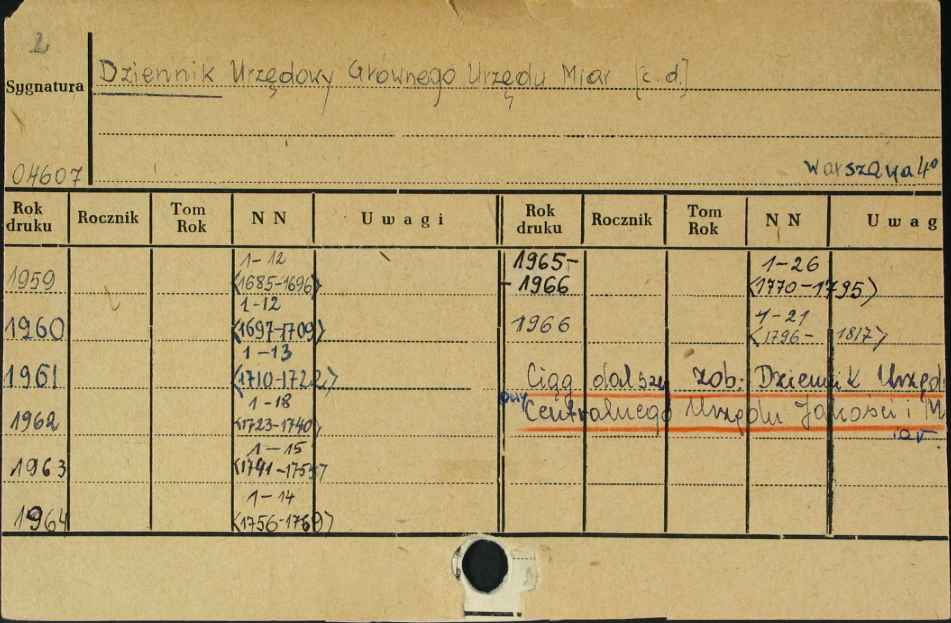 2
Sygnatura
Dziennik Urzędowy Głównego Urzędu Miar [c.d.]
04607
Warszawa 4°
Rok druku Rocznik Tom Rok NN Uwagi Rok druku Rocznik Tom Rok NN Uwag
1959 1-12 <1685-1696>
1960 1-12 <1697-1709>
1961 1-13 <1710-1722>
1962 1-18 <1723-1740>
1963 1-15 <1741-1755>
1964 1-14 <1756-1769>
1965-
-1966 1-26 <1770-1795>
1966 1-21 <1796-1817>
Ciąg dalszy zob: Dziennik Urzęd
owy Centralnego Urzędu Jakości i M
iar.